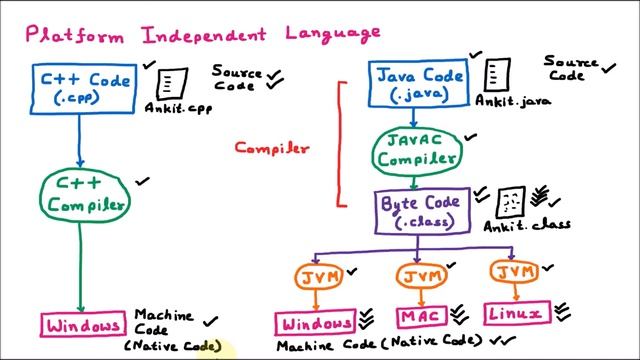 Platform Independent Language
C++ Code
(.cpp)
Ankit.cpp
Source
Code
C++
Compiler
Windows
Machine
Code
(Native Code)
Compiler
Java Code
(.java)
Ankit.java
Source
Code
JAVAC
Compiler
Byte Code
(.class)
Ankit.class
JVM
JVM
JVM
Windows
MAC
Linux
Machine Code (Native Code)